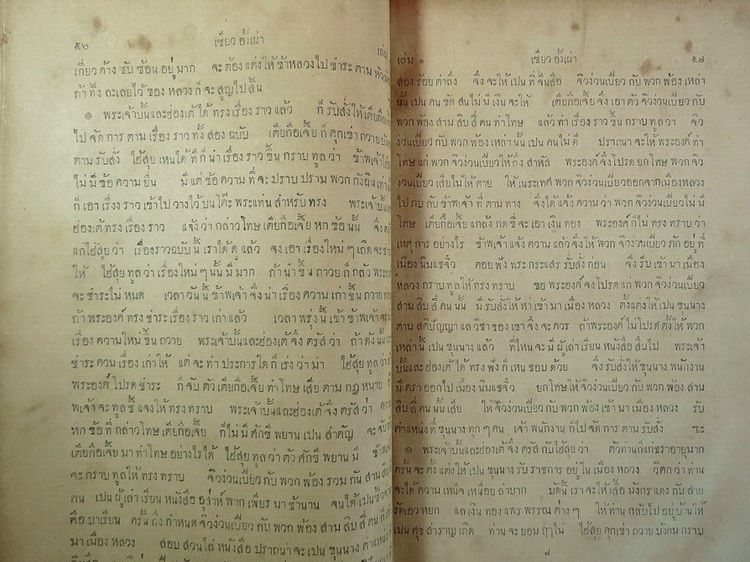 ๕๖ เซียว อั้งเผ่า
เกี่ยว ค้าง ซับ ซ้อน อยู่ มาก จะ ต้อง แต่ง ให้ ข้า หลวง ไป ชำระ ตาม หัวเมือง
ถ้า ทิ้ง ละเลย ไว้ ของ หลวง ก็ จะ สูญ ไป สิ้น
๏ พระเจ้า บั้นและฮ่องเต้ ได้ ทรง เรื่อง ราว แล้ว ก็ รับสั่ง ให้ เตียกือเจี้ย
ไป จัด การ ตาม เรื่อง ราว ทั้ง สอง ฉบับ เตียกือเจี้ย ก็ คุกเข่า ถวาย บังคม
ตาม รับสั่ง ไฮ้สุย เหน ได้ ที ก็ นำ เรื่อง ราว ขึ้น กราบ ทูล ว่า ข้าพเจ้า ได้
ไม่ มี ข้อ ความ ยื่น มี แต่ ข้อ ความ ที่ จะ ปราบ ปราม พวก กังฉิน เท่า
ก็ เอา เรื่อง ราว เข้า ไป วาง ไว้ บน โต๊ะ พระแทน สำหรับ ทรง พระเจ้า บั้น
ฮ่องเต้ ทรง เรื่อง ราว แจ้ง ว่า กล่าวโทษ เตียกือเจี้ย หก ข้อ นั้น จึง
แก่ ไฮ้สุย ว่า เรื่อง ราว ฉบับ นี้ เรา ได้ ดู แล้ว จง เอา เรื่อง ใหม่ ๆ เกิด
ให้ ไฮ้สุย ทูล ว่า เรื่อง ใหม่ ๆ นั้น มี มาก ถ้า นำ ขึ้น ถวาย ก็ กลัว พระองค์
จะ ชำระ ไม่ หมด เวลา วัน นี้ ข้าพเจ้า จึง นำ เรื่อง ความ เก่า ขึ้น ถวาย ก่อน
ถ้า พระองค์ ทรง ชำระ เรื่อง ราว เก่า แล้ว เวลา พรุ่ง นี้ เช้า ข้าพเจ้า จะ เอา
เรื่อง ความ ใหม่ ขึ้น ถวาย พระเจ้า บั้นและฮ่องเต้ จึง ตรัส ว่า ถ้า ดัง นั้น
ชำระ ความ เรื่อง เก่า ให้ แต่ จะ ทำ ประการ ใด ก็ เร่ง ว่า มา ไฮ้สุย ทูล ว่า
พระองค์ โปรด ชำระ ก็ จับ ตัว เตียกือเจี้ย ทำ โทษ เสีย ตาม กฎหมาย
พเจ้า จะ ทูล ชี้ แจง ให้ ทรง ทราบ พระเจ้า บั้นและฮ่องเต้ จึง ตรัส ว่า
หก ข้อ ที่ กล่าว โทษ เตียกือเจี้ย ก็ ไม่ มี ศักขี พยาน เปน สำคัญ จะ จับ
เตียกือเจี้ย มา ทำ โทษ อย่าง ไร ได้ ไฮ้สุย ทูล ว่า ตัว ศักขี พยาน มี
จะ กราบ ทูล ให้ ทรง ทราบ จิวง่วนเปียว กับ พวก พ้อง รวม กัน สาม สิบ
คน เปน ผู้ เล่า เรียน หนังสือ อุส่าห์ พาก เพียร มา ช้า นาน จน ได้ เปน
คือ บาเรียน ครั้น ถึง กำหนด จิวง่วนเปียว กับ พวก พ้อง สาม สิบ สี่ คน ก็
มา เมือง หลวง สอบ สวน ไล่ หนังสือ ปราถนา จะ เปน ขุนนาง ตำแหน่ง
เล่ม ๑ เซียว อั้งเผ่า ๕๗
สอง ร้อย ตำลึง จึง จะ ให้ เปน ที่ จีนสือ จิวง่วนเปียว กับ พวก พ้อง เหล่า
นั้น เปน คน ขัด สน ไม่ มี เงิน จะ ให้ เตียกือเจี้ย จึง เอา ตัว จิวง่วนเปียว กับ
พวก พ้อง สาม สิบ สี่ คน ทำ โทษ แล้ว ทำ เรื่อง ราว ขึ้น กราบ ทูล ว่า จิว
ง่วนเปียว กับ พวก พ้อง เหล่า นั้น เปน คน ไม่ ดี ปราถนา จะ ให้ พระองค์ ทำ
โทษ แก่ พวก จิวง่วนเปียว ให้ ถึง สาหัส พระองค์ จึง โปรด ยก โทษ พวก จิว
ง่วนเปียว เสีย ไม่ ให้ ตาย ให้ เนระเทศ พวก จิวง่วนเปียว ออก จาก เมือง หลวง
ไป รบ กับ ข้าพเจ้า ที่ ตาม ทาง จึง ได้ แจ้ง ความ ว่า พวก จิวง่วนเปียว ไม่ มี
โทษ เตียกือเจี้ย แกล้ง กด ขี่ จะ เอา เงิน ทอง พระองค์ ก็ ไม่ ทรง ทราบ ว่า
เหตุ การ อย่าง ไร ข้าพเจ้า แจ้ง ความ แล้ว จึง ให้ พวก จิวง่วนเปียว พัก อยู่ ที่
เมือง นิมแซจิ๋ว คอย ฟัง พระ กระแส รับสั่ง ก่อน จึง รีบ เข้า มา เมือง
หลวง กราบ ทูล ให้ ทรง ทราบ ขอ พระองค์ จง โปรด แก่ พวก จิวง่วนเปียว
สาม สิบ สี่ คน นั้น มี รับสั่ง ให้ หา เข้า มา เมือง หลวง ตั้ง แต่ง ให้ เปน ขุนนาง
ตาม สติ ปัญญา แล วิชา ของ เขา จึง จะ ควร ถ้า พระองค์ ไม่ โปรด ตั้ง ให้ พวก
เหล่า นี้ เปน ขุนนาง แล้ว ที่ ไหน จะ มี ผู้ เล่า เรียน หนังสือ สืบ ไป พระเจ้า
บั้นและฮ่องเต้ ได้ ทรง ฟัง ก็ เหน ชอบ ด้วย จึง รับสั่ง ให้ ขุนนาง พนักงาน
มี ตรา ออก ไป เมือง นิมแซจิ๋ว ยก โทษ ให้ จิวง่วนเปียว กับ พวก พ้อง สาม
สิบ สี่ คน นั้น เสีย ให้ จิวง่วนเปียว กับ พวก พ้อง เข้า มา เมือง หลวง รับ
ตำแหน่ง ที่ ขุนนาง ทุก ๆ คน เจ้า พนักงาน ก็ ไป จัด การ ตาม รับสั่ง
๏ พระเจ้า บั้นและฮ่องเต้ จึง ตรัส กับ ไฮ้สุย ว่า ตัว ท่าน ก็ แก่ ชรา อายุ มาก
ครั้น จะ ตั้ง แต่ง ให้ เปน ขุนนาง รับ ราชการ อยู่ ใน เมือง หลวง วิตก ว่า ท่าน
จะ ได้ ความ เหน็จ เหนื่อย ลำบาก บัดนี้ เรา จะ ให้ เสื้อ มังกร แดง กับ สาย
รัด เอว หยก แล เงิน ทอง แพร พรรณ ต่าง ๆ ให้ ท่าน กลับ ไป อยู่ บ้าน ให้
เปน ศุข สำราญ เถิด ท่าน จะ ยอม ฤา ไม่ ไฮ้สุย คุกเข่า ถวาย บังคม กราบ